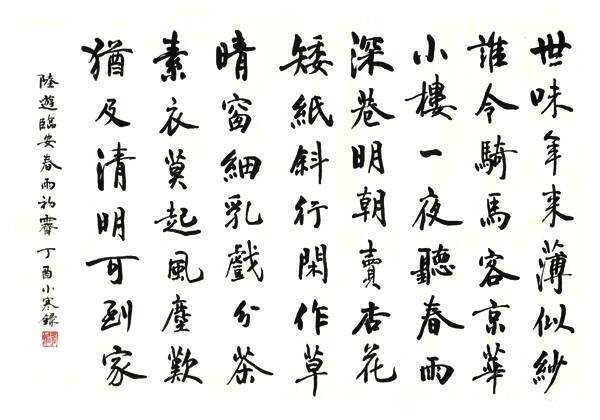 世味年來薄似紗
誰令騎馬客京華
小樓一夜聽春雨
深巷明朝賣杏花
矮紙斜行閑作草
晴窗細乳戲分茶
素衣莫起風塵歎
猶及清明可到家
陸遊臨安春雨初霽 丁酉小寒錄